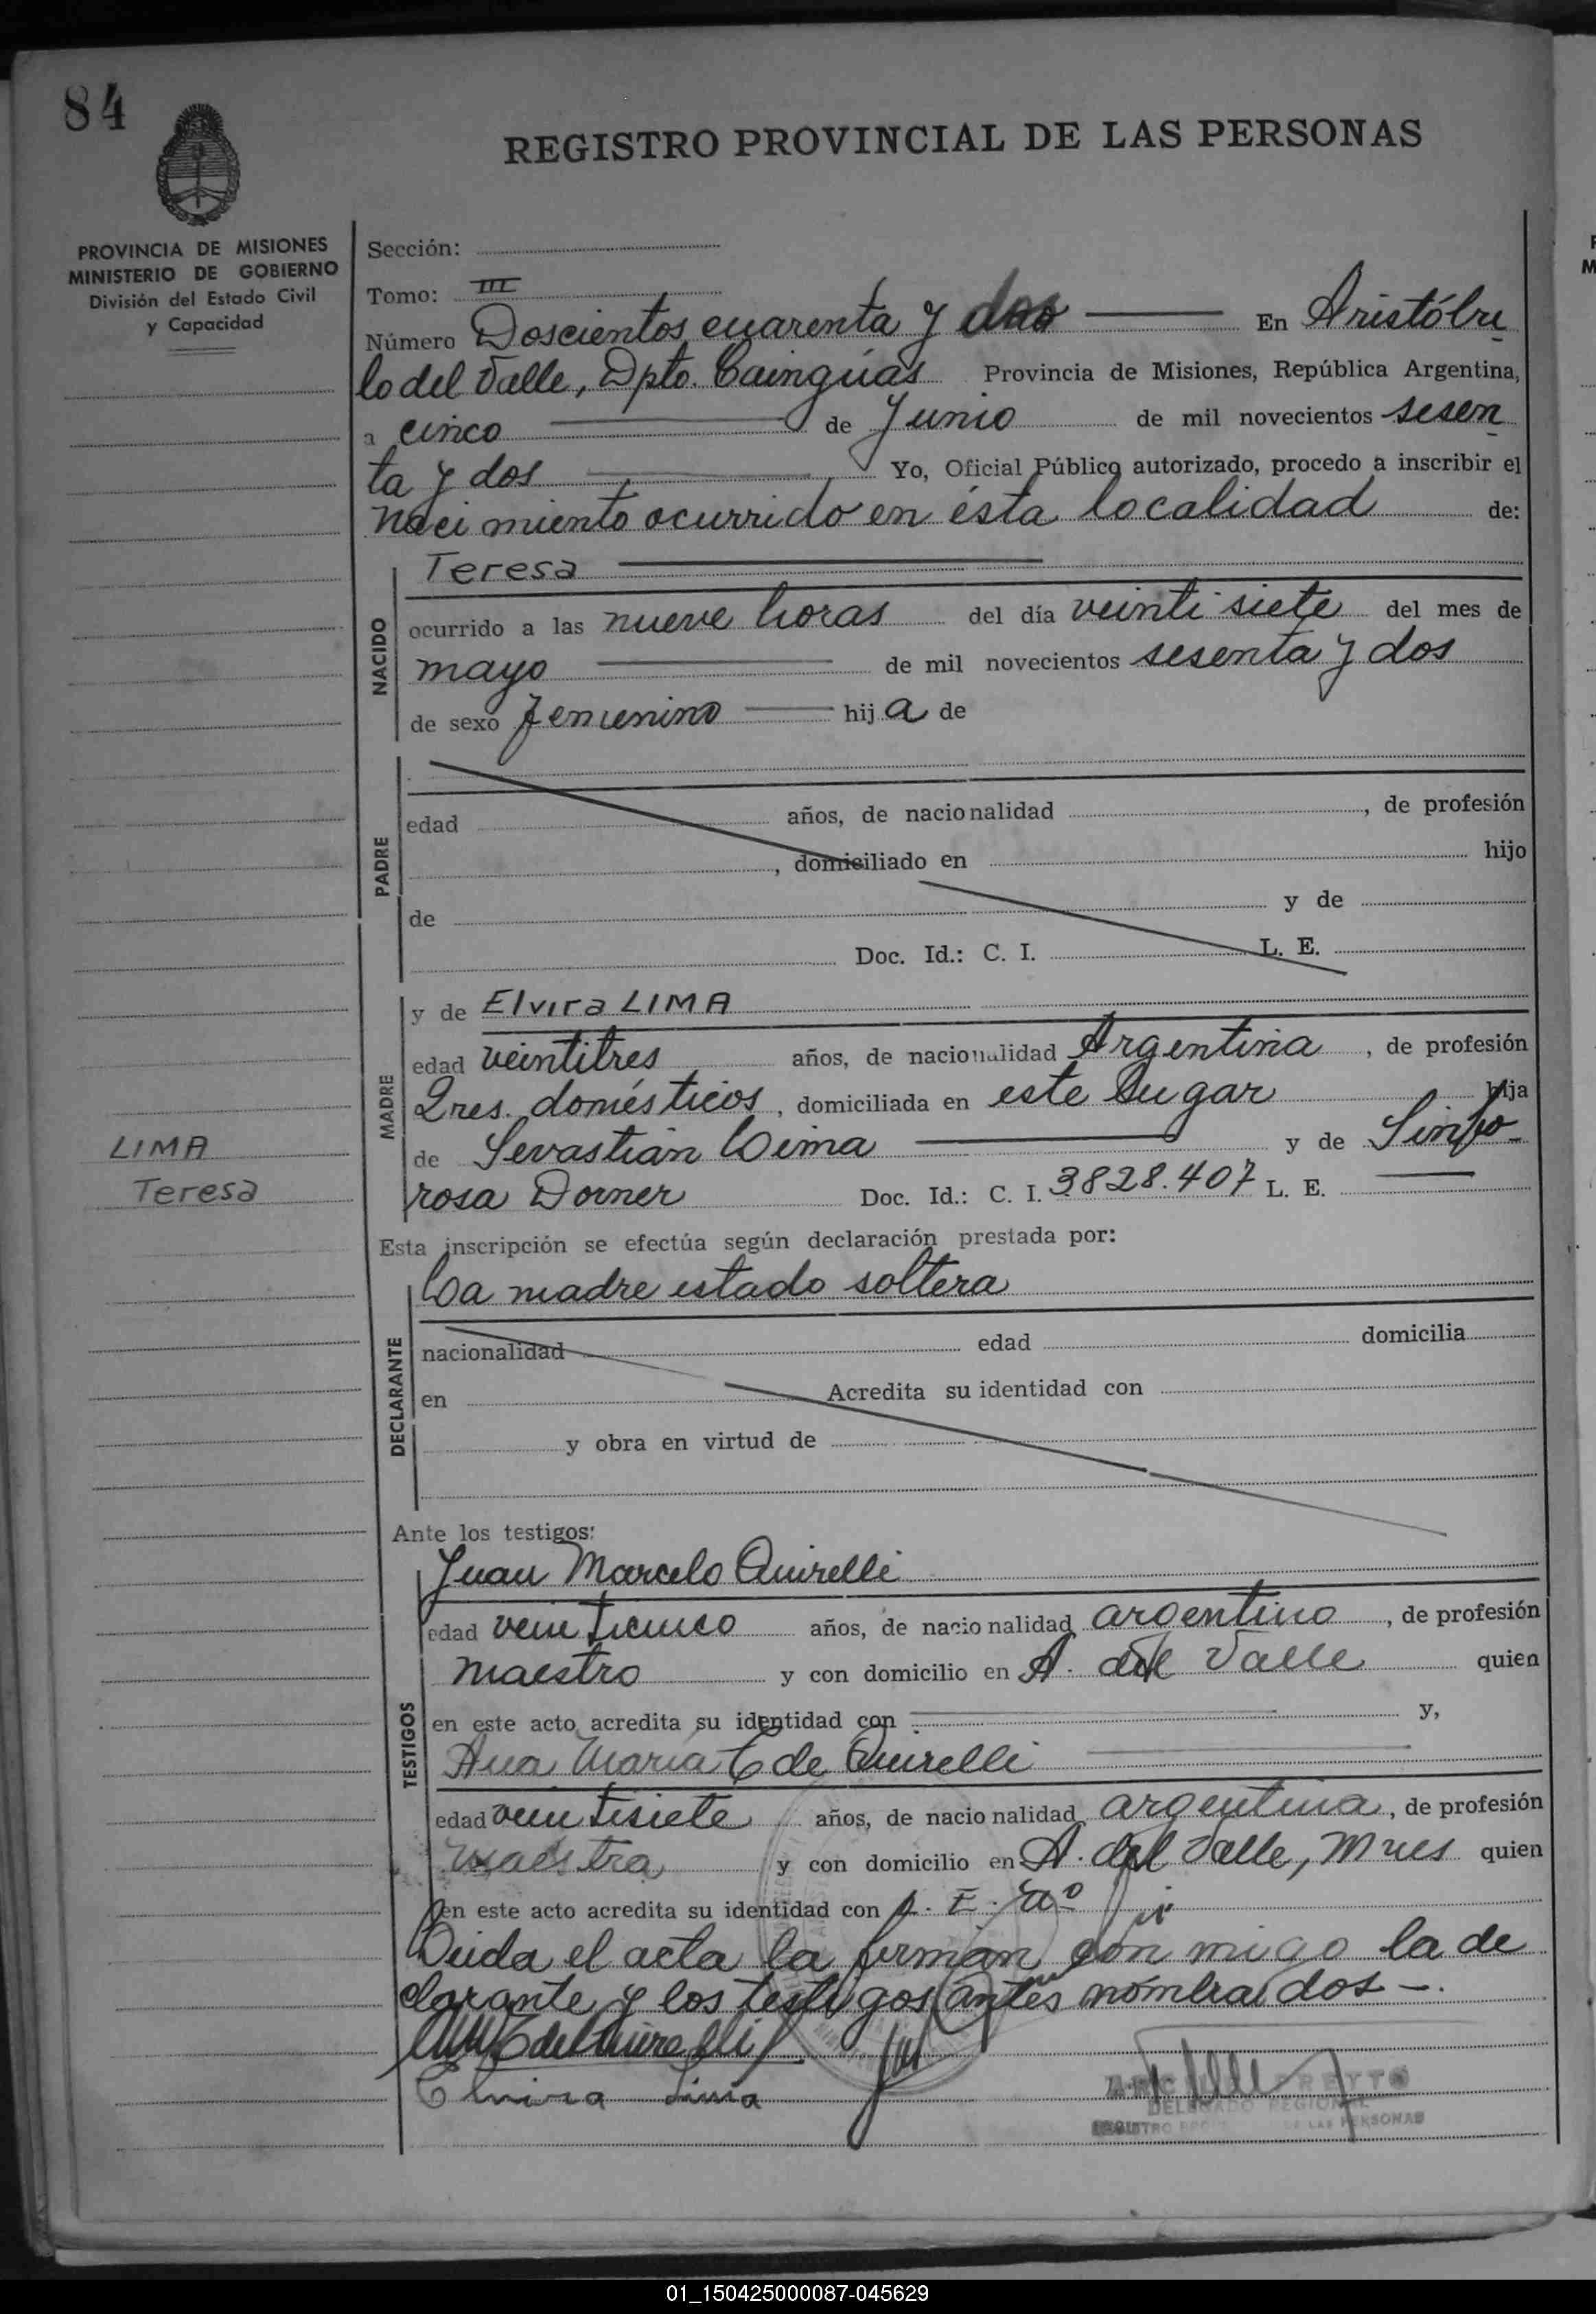 84
REGISTRO PROVINCIAL DE LAS PERSONAS
PROVINCIA DE MISIONES
MINISTERIO DE GOBIERNO
División del Estado Civil
y Capacidad
Sección:
Tomo: III
Número Doscientos cuarenta y dos En Aristóbu
lo del Valle, Dpto. Cainguás Provincia de Misiones, República Argentina,
a cinco de Junio de mil novecientos sesen
ta y dos Yo, Oficial Público autorizado, procedo a inscribir el
nacimiento ocurrido en ésta localidad de:
NACIDO
Teresa
ocurrido a las nueve horas del día veinti siete del mes de
mayo de mil novecientos sesenta y dos
de sexo femenino hija de
PADRE
edad años, de nacionalidad , de profesión
, domiciliado en hijo
de y de
Doc. Id.: C. I. L. E.
MADRE
y de Elvira LIMA
edad veintitres años, de nacionalidad Argentina , de profesión
Qres. domésticos , domiciliada en este Lugar hija
de Sevastián Lima y de Sinfo-
rosa Dorner Doc. Id.: C. I. 3828.407 L. E.
LIMA
Teresa
Esta inscripción se efectúa según declaración prestada por:
DECLARANTE
La madre estado soltera
nacionalidad edad domicilia
en Acredita su identidad con
y obra en virtud de
Ante los testigos:
TESTIGOS
Juan Marcelo Quirelli
edad veinticinco años, de nacionalidad argentino , de profesión
maestro y con domicilio en A. del Valle quien
en este acto acredita su identidad con y,
Ana María C de Quirelli
edad veintisiete años, de nacionalidad argentina , de profesión
maestra y con domicilio en A. del Valle, Mnes quien
en este acto acredita su identidad con
Leida el acta la firman con migo la de
clarante y los testigos antes nombrados -.
Elvira Lima
DELEGADO REGIONAL
REGISTRO DE LAS PERSONAS
01_150425000087-045629